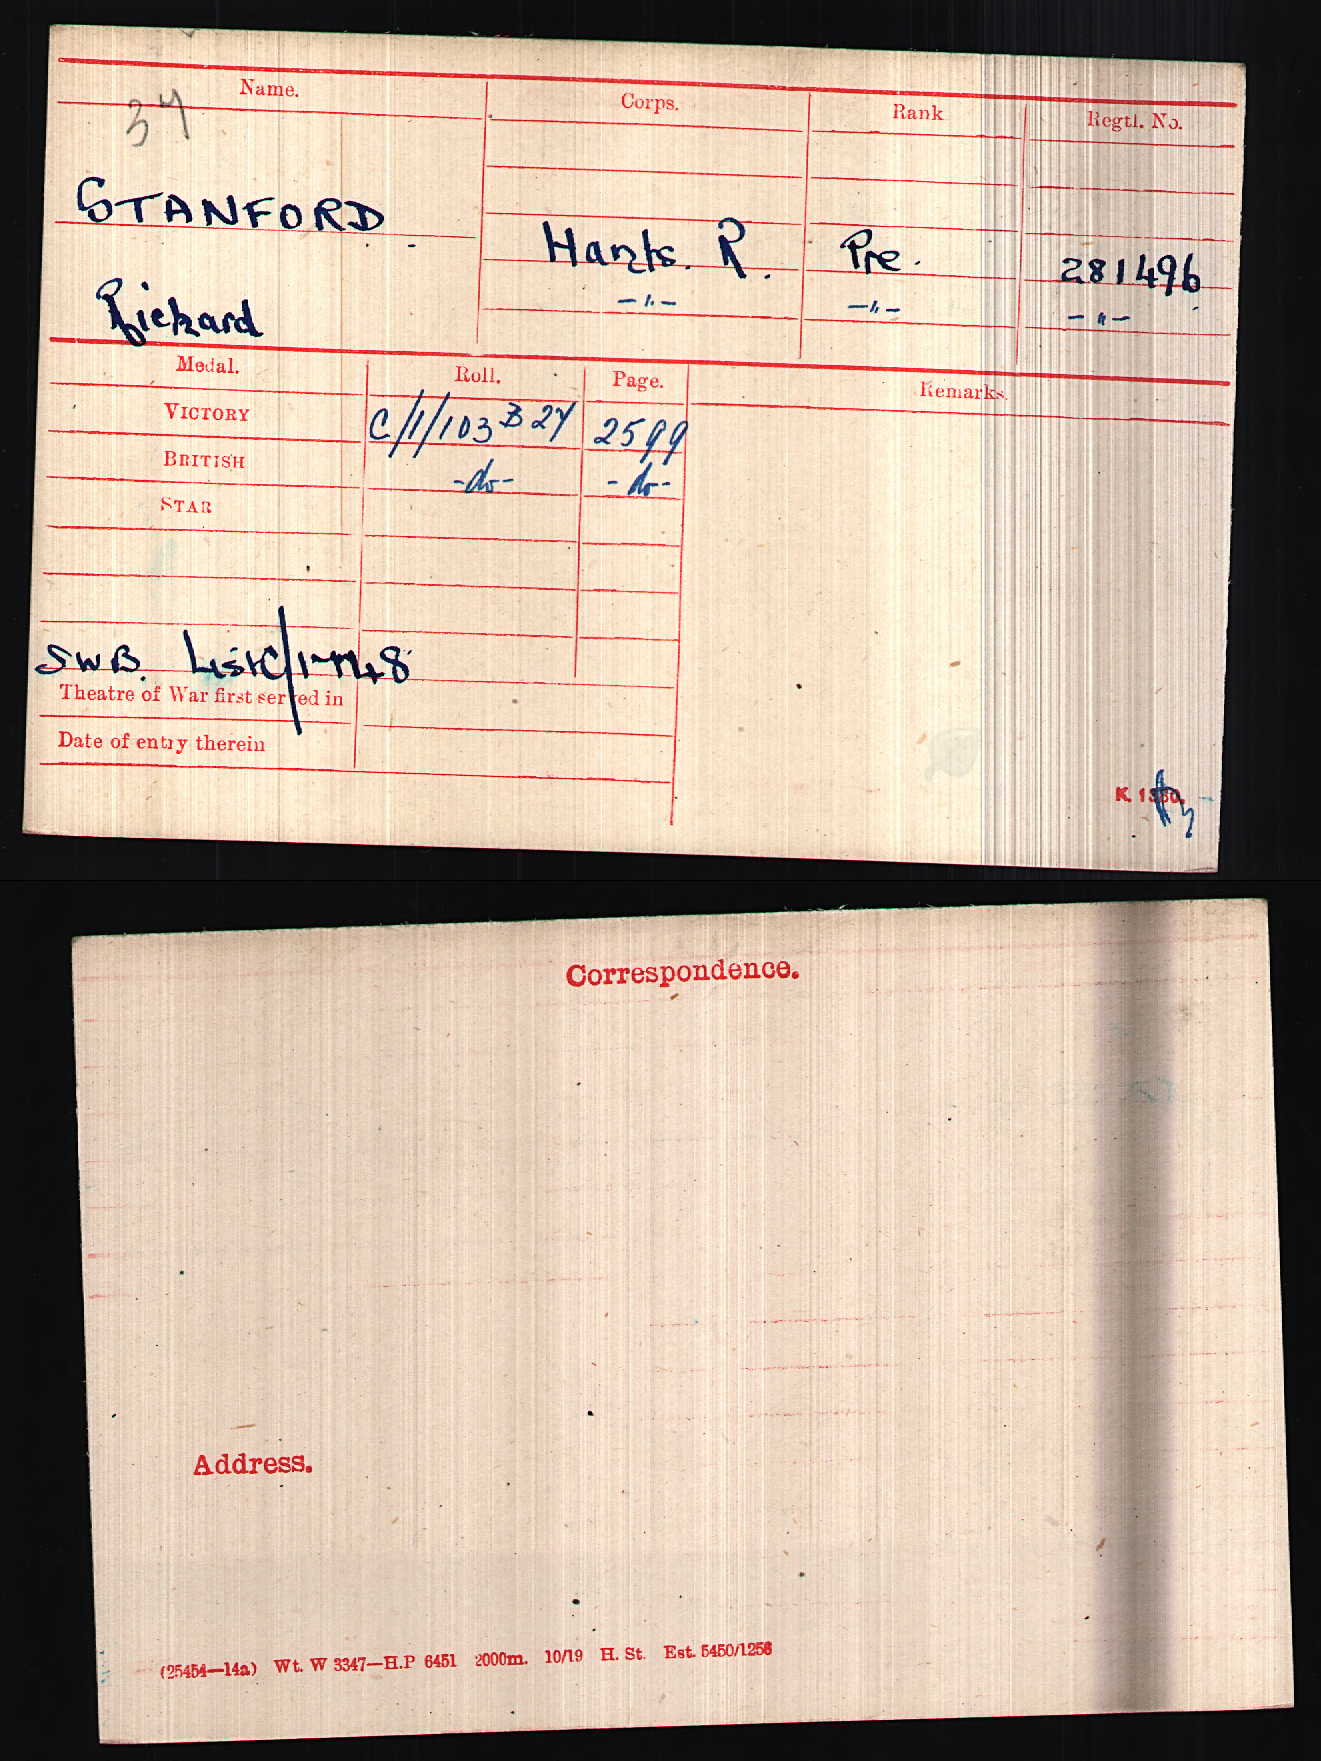 Name. Corps. Rank Regtl. No.
37
STANFORD Hants. R. Pte. 281496
Richard -"- -"- -"-
Medal. Roll. Page. Remarks.
VICTORY C/1/103 B 27 2599
BRITISH -do- -do-
STAR
SWB. List C/1148
Theatre of War first served in
Date of entry therein
K. 1380.
Correspondence.
Address.
(25454—14a) Wt. W 3347—H.P 6451 2000m. 10/19 H. St. Est. 5450/1256